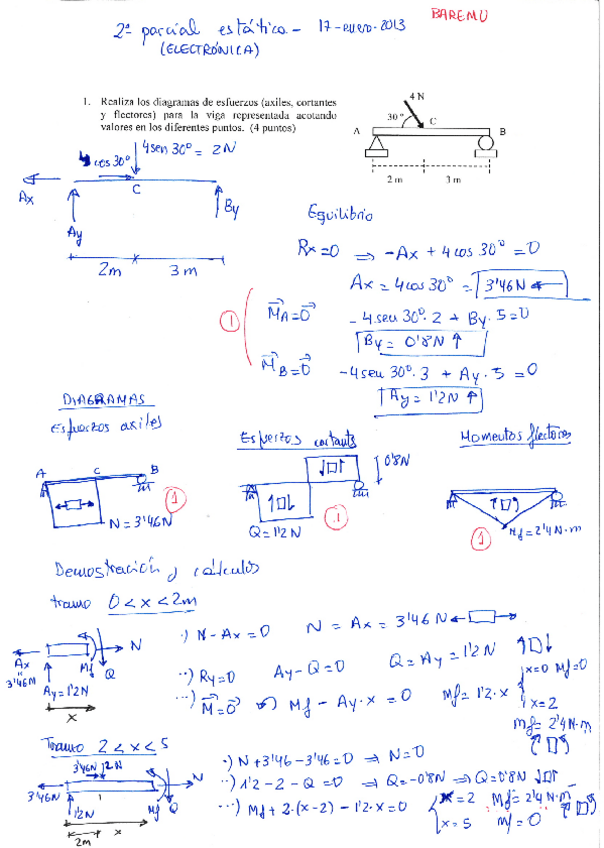 BAREMO
2ª parcial estática - 17-enero-2013
(ELECTRÓNICA)
1. Realiza los diagramas de esfuerzos (axiles, cortantes
y flectores) para la viga representada acotando
valores en los diferentes puntos. (4 puntos)
4 N
30°
C
A
B
2 m
3 m
4 cos 30°
4 sen 30° = 2N
Ax
C
Ay
By
2m
3m
Equilibrio
Rx=0 ⇒ -Ax + 4 cos 30° = 0
Ax = 4 cos 30° = 3'46N ←
1
M_A=0 -4 sen 30°·2 + By·5=0
By = 0'8N ↑
M_B=0 -4 sen 30°·3 + Ay·5 = 0
Ay = 1'2N ↑
DIAGRAMAS
Esfuerzos axiles
A
C
B
N = 3'46N
1
Esfuerzos cortantes
0'8N
Q = 1'2N
1
Momentos flectores
Mf = 2'4 N·m
1
Demostración y cálculos
tramo 0 < x < 2m
Ax
3'46N
Ay = 1'2N
Mf
Q
N
x
·) N - Ax = 0 N = Ax = 3'46N
··) Ry=0 Ay - Q = 0 Q = Ay = 1'2N
···) M=0 Mf - Ay·x = 0 Mf = 1'2·x
x=0 Mf=0
x=2
Mf = 2'4 N·m
Tramo 2 < x < 5
3'46N
2N
3'46N
1'2N
Mf
Q
N
2m
x
·) N + 3'46 - 3'46 = 0 ⇒ N=0
··) 1'2 - 2 - Q = 0 ⇒ Q = -0'8N ⇒ Q = 0'8N
···) Mf + 2·(x-2) - 1'2·x = 0
x = 2 Mf = 2'4 N·m
x = 5 Mf = 0